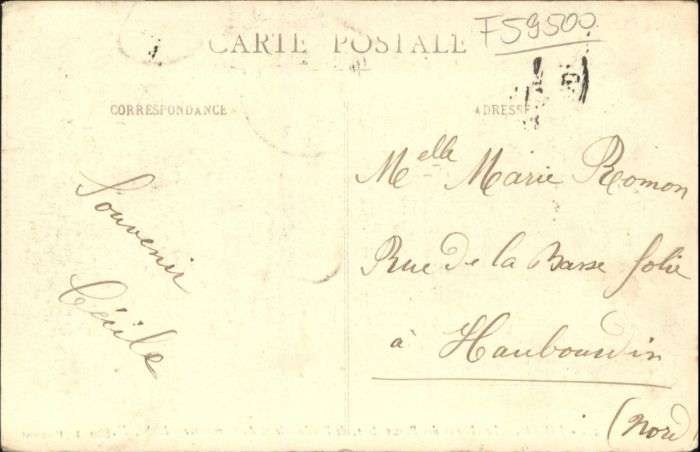 CARTE POSTALE
F59500
CORRESPONDANCE
ADRESSE
Souvenir
Cécile
Melle Marie Romon
Rue de la Basse folie
à Haubourdin
(Nord)